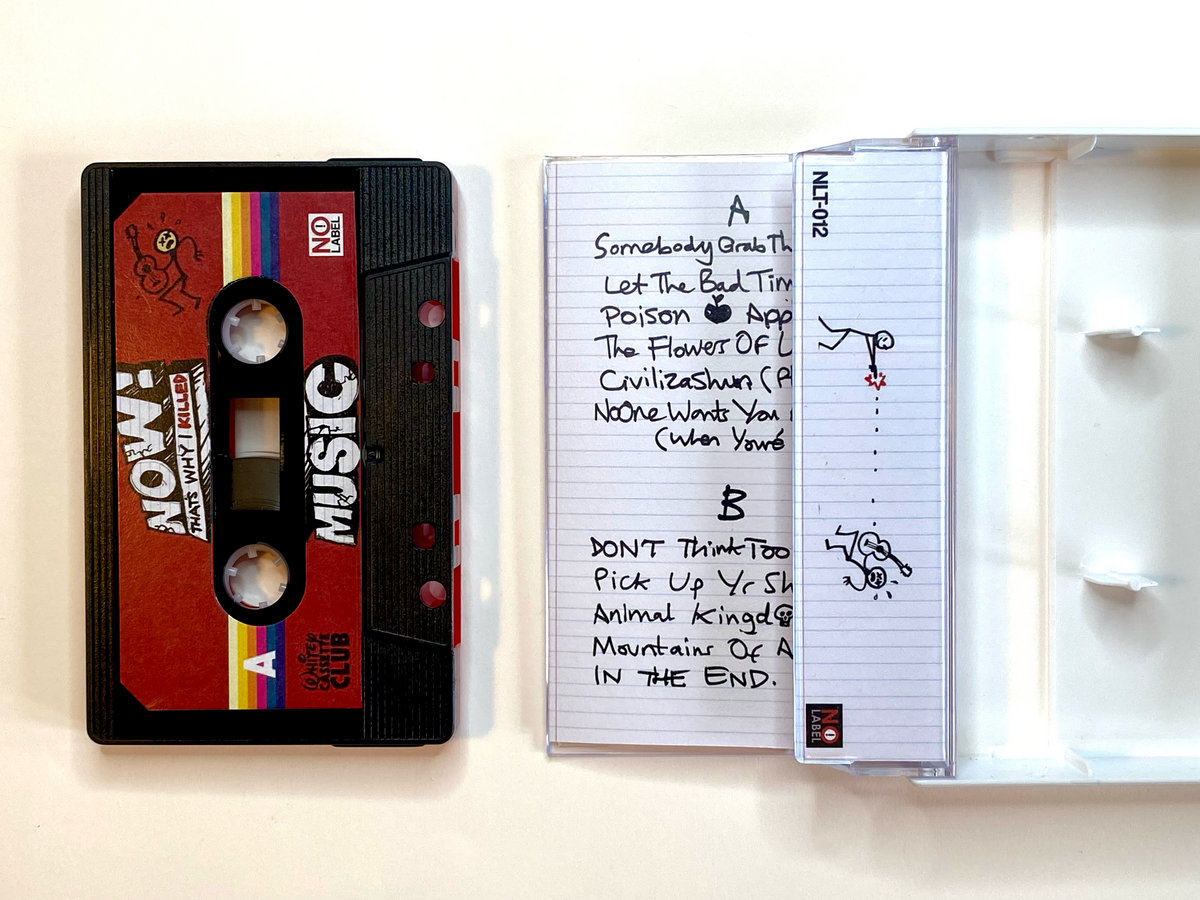 NO
LABEL
NOW:
THAT'S WHY I KILLED
MUSIC
A
WRITER
CASSETTE
CLUB
A
Somebody Grab Th
Let The Bad Tim
Poison App
The Flowers Of L
CivilizaShun (Pl
NoOne Wants You
(When You're
B
DON'T Think Too
Pick Up Yr Sh
Animal Kingd
Mountains Of A
IN THE END.
NLT-012
NO
LABEL